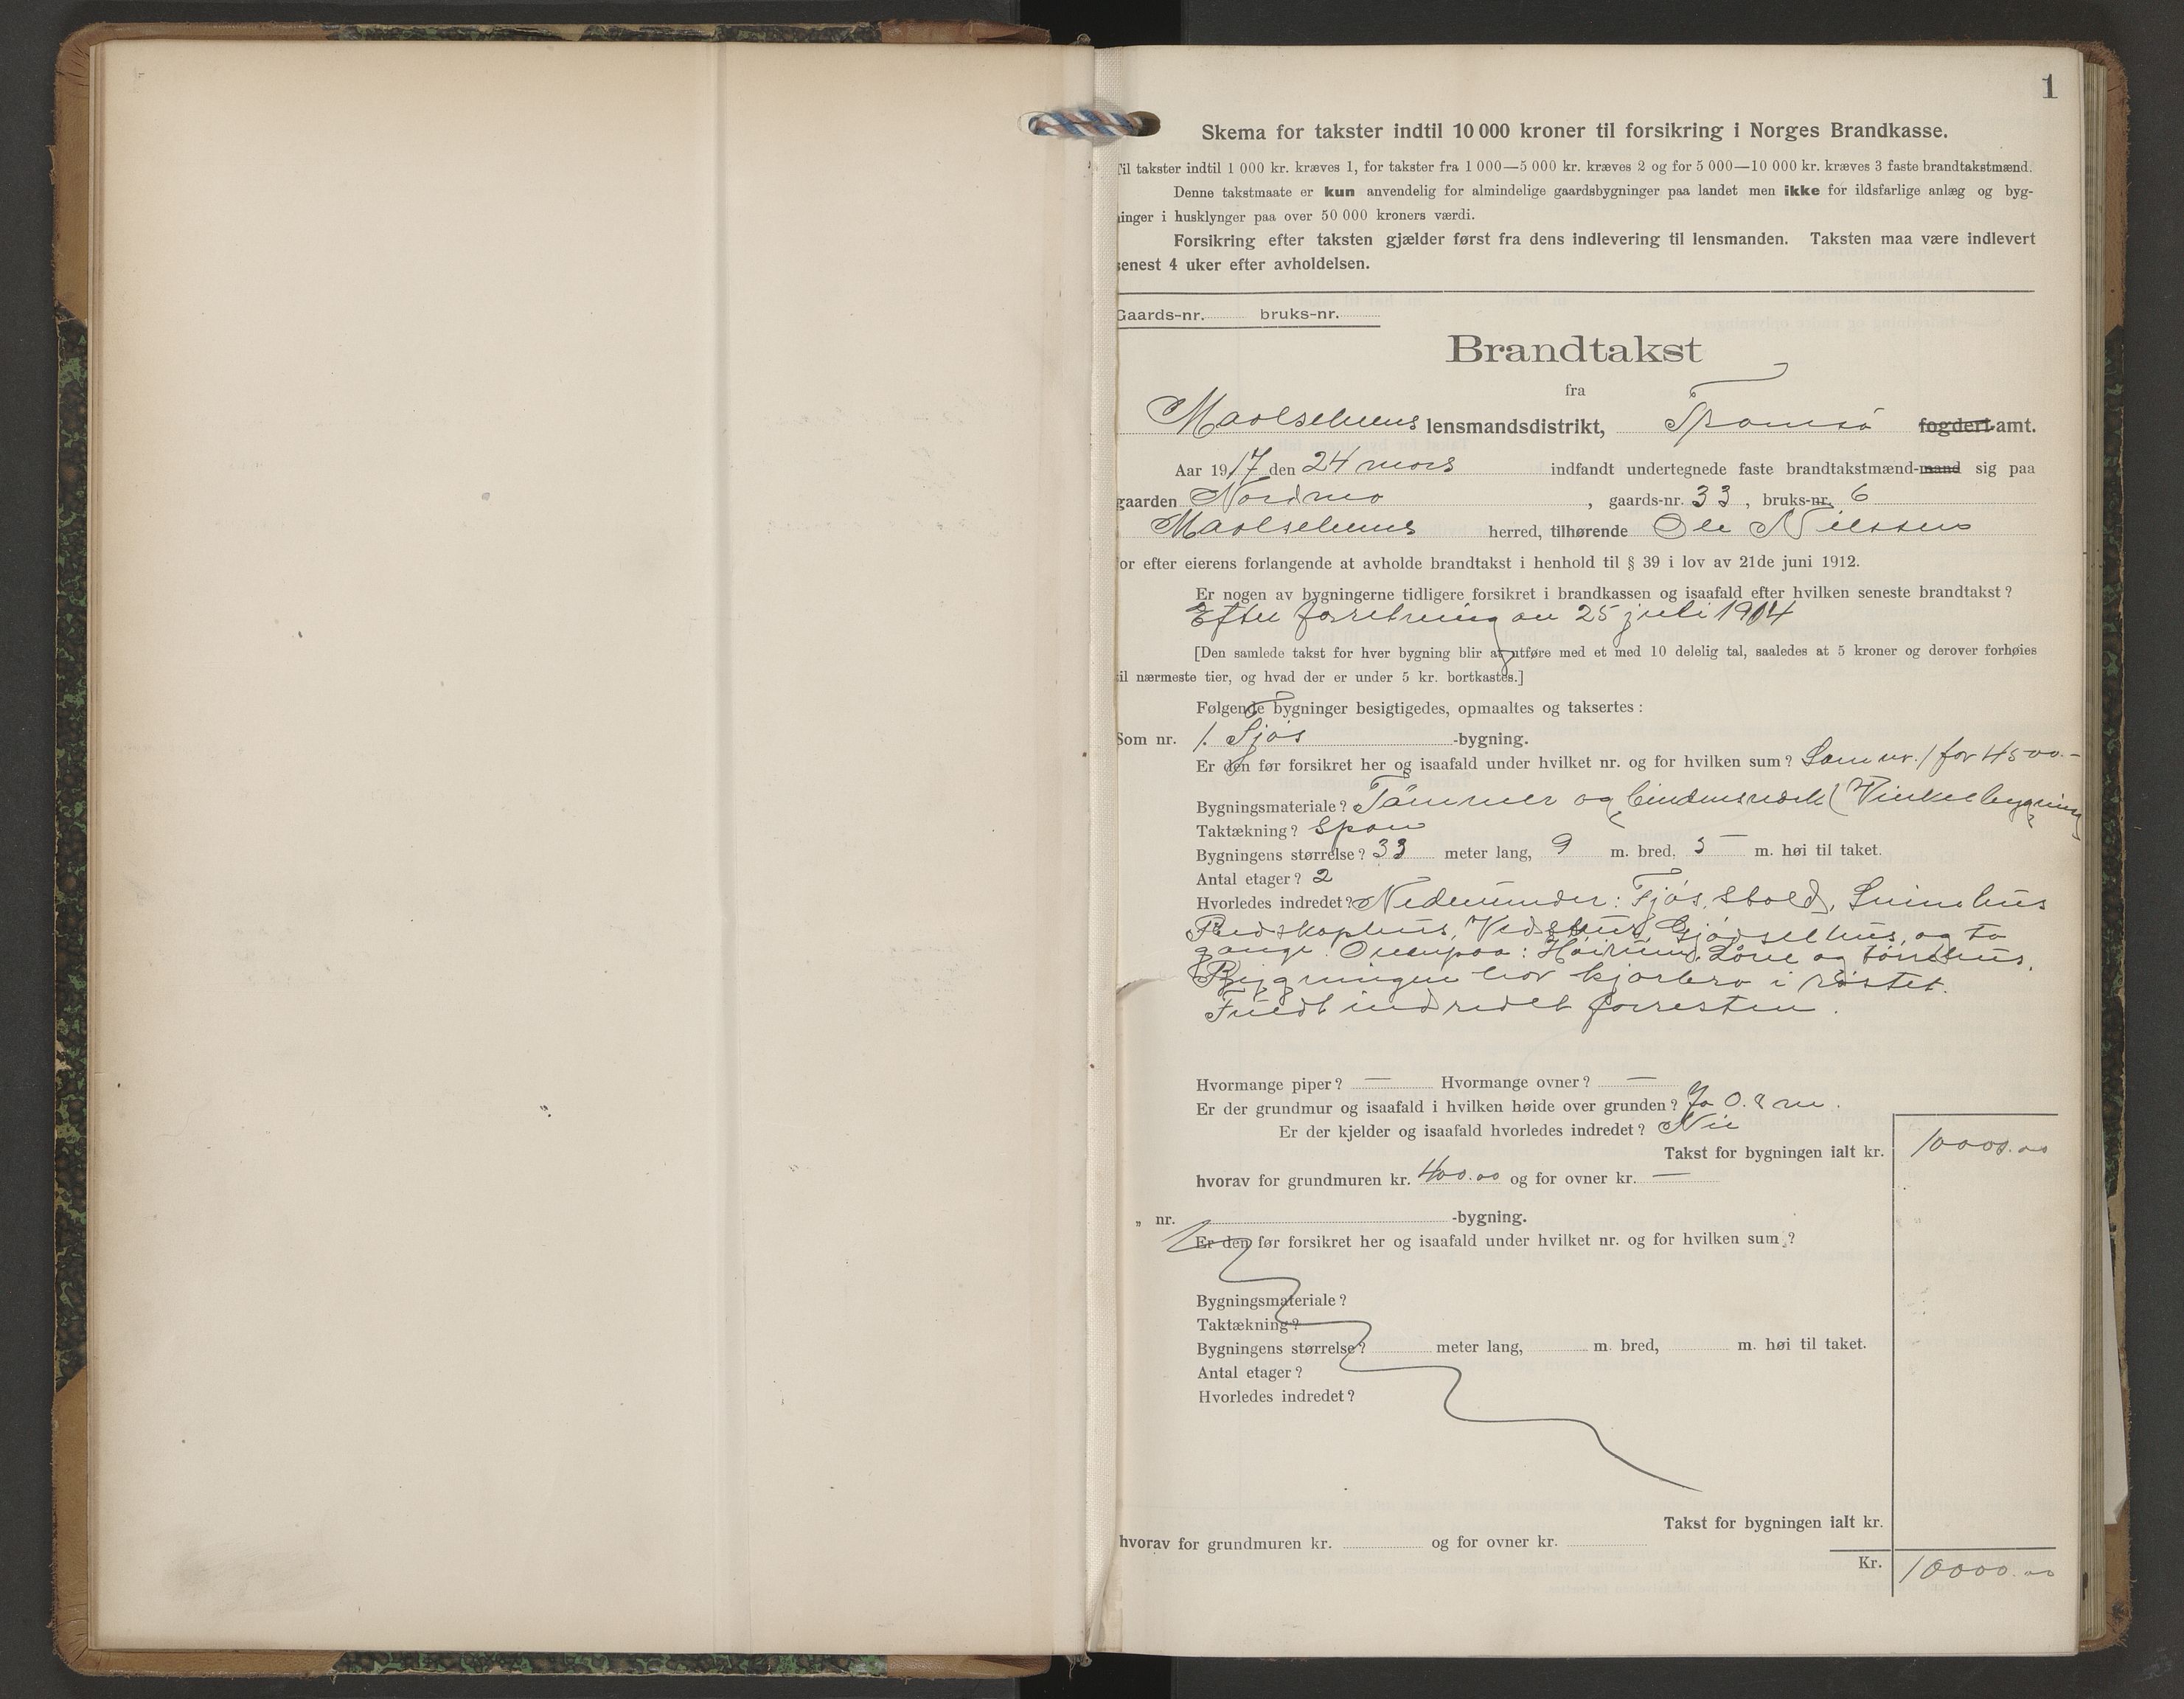 1
Skema for takster indtil 10 000 kroner til forsikring i Norges Brandkasse.
Til takster indtil 1 000 kr. kræves 1, for takster fra 1 000—5 000 kr. kræves 2 og for 5 000—10 000 kr. kræves 3 faste brandtakstmænd.
Denne takstmaate er kun anvendelig for almindelige gaardsbygninger paa landet men ikke for ildsfarlige anlæg og byg-
ninger i husklynger paa over 50 000 kroners værdi.
Forsikring efter taksten gjælder først fra dens indlevering til lensmanden. Taksten maa være indlevert
senest 4 uker efter avholdelsen.
Gaards-nr. bruks-nr.
Brandtakst
fra
Maalselvens lensmandsdistrikt, Tromsø fogderi-amt.
Aar 1917 den 24 mars indfandt undertegnede faste brandtakstmænd-mand sig paa
gaarden Nordmo, gaards-nr. 33, bruks-nr. 6
Maalselvens herred, tilhørende Ole Nilssen
for efter eierens forlangende at avholde brandtakst i henhold til § 39 i lov av 21de juni 1912.
Er nogen av bygningerne tidligere forsikret i brandkassen og isaafald efter hvilken seneste brandtakst?
Efter forretning av 25 juli 1904
[Den samlede takst for hver bygning blir at utføre med et med 10 delelig tal, saaledes at 5 kroner og derover forhøies
til nærmeste tier, og hvad der er under 5 kr. bortkastes.]
Følgende bygninger besigtigedes, opmaaltes og taksertes:
Som nr. 1. Fjøs -bygning.
Er den før forsikret her og isaafald under hvilket nr. og for hvilken sum? Som nr. 1 for 4500.-
Bygningsmateriale? Tømmer og bindingsverk (Vinkelbygning
Taktækning? Spon
Bygningens størrelse? 33 meter lang, 9 m. bred, 5 m. høi til taket.
Antal etager? 2
Hvorledes indredet? Nedenunder: Fjøs, Stald, Svinehus
Redskaphus, Vedskur, Gjødselhus, og to
gange. Ovenpaa: Høirum, Laave og tørrehus.
Bygningen har kjørbro i røstet.
Fuldt indredet forresten.
Hvormange piper? — Hvormange ovner? —
Er der grundmur og isaafald i hvilken høide over grunden? Ja 0.8 m.
Er der kjelder og isaafald hvorledes indredet? Nei
Takst for bygningen ialt kr. 10000.00
hvorav for grundmuren kr. 400.00 og for ovner kr. —
„ nr. -bygning.
Er den før forsikret her og isaafald under hvilket nr. og for hvilken sum?
Bygningsmateriale?
Taktækning?
Bygningens størrelse? meter lang, m. bred, m. høi til taket.
Antal etager?
Hvorledes indredet?
Takst for bygningen ialt kr.
hvorav for grundmuren kr. og for ovner kr.
Kr. 10000.00